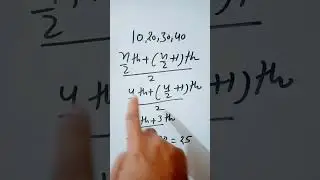 10,20,30,40
n/2 th + (n/2 + 1) th
2
4 th + (4/2 + 1) th
2
th + 3 th
= 25